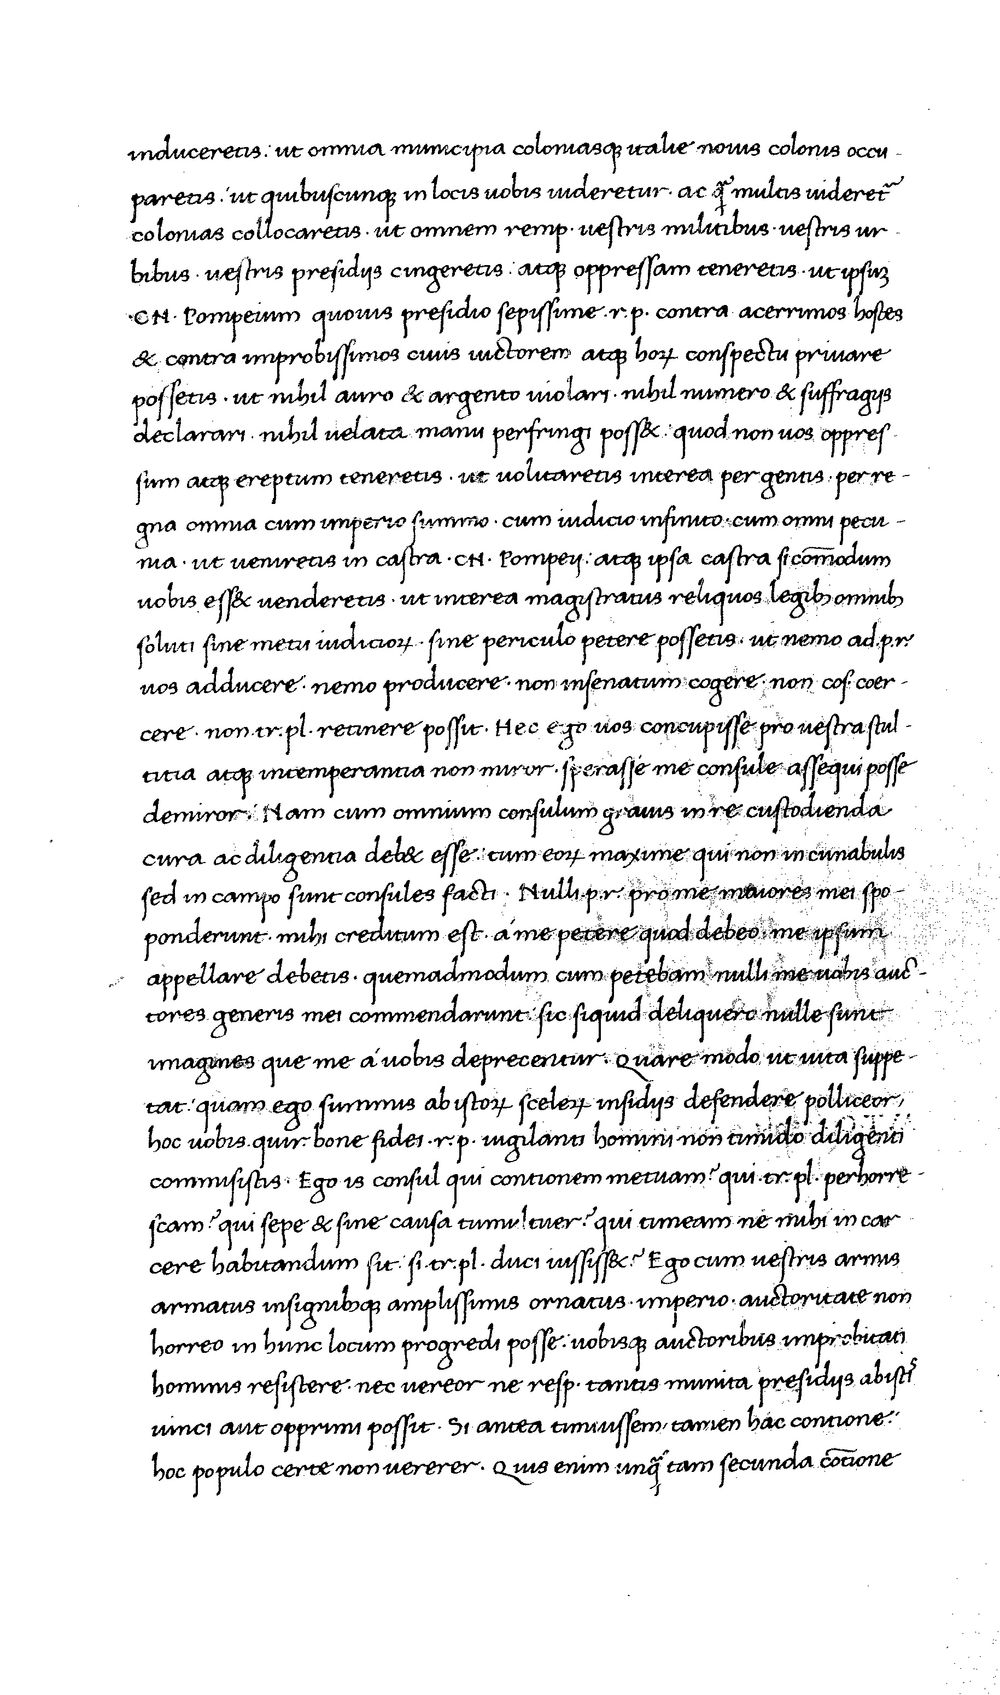 induceretis: ut omnia municipia coloniasqꝫ italie nouis colonis occu-
paretis: ut quibuscunqꝫ in locis uobis uideretur. ac qͣ̃ multis uideret᷑
colonias collocaretis. ut omnem remp. uestris militibus. uestris ur-
bibus. uestris presidijs cingeretis: atqꝫ oppressam teneretis. ut ipsuꝫ
.CN. Pompeium quouis presidio sepissime .r.p. contra acerrimos hostes
& contra improbissimos ciuis uictorem atqꝫ horꝝ conspectu priuare
possetis. ut nihil auro & argento uiolari. nihil numero & suffragijs
declarari. nihil uelata manu perfringi poss&: quod non uos oppres-
sum atqꝫ ereptum teneretis. ut uolitaretis interea per gentis. per re-
gna omnia cum imperio summo. cum iudicio infinito. cum omni pecu-
nia. ut ueniretis in castra .CN. Pompeij: atqꝫ ipsa castra si com̄odum
uobis ess& uenderetis. ut interea magistratus reliquos legibꝫ omnibꝫ
soluti sine metu iudiciorꝝ. sine periculo petere possetis. ut nemo ad .p.r.
uos adducere. nemo producere. non insenatum cogere. non cos. coer-
cere. non .tr. pl. retinere possit. Hec ego uos concupisse pro uestra stul-
titia atqꝫ intemperantia non miror. sperasse me consule assequi posse
demiror: Nam cum omnium consulum grauis in re custodienda
cura ac diligentia deb& esse: tum eorꝝ maxime qui non in cunabulis
sed in campo sunt consules facti. Nulli .p.r. pro me maiores mei spo-
ponderunt. mihi creditum est. á me petere quod debeo. me ipsum
appellare debetis. quemadmodum cum petebam nulli me uobis auc-
tores generis mei commendarunt: sic siquid deliquero nulle sunt
imagines que me á uobis deprecentur. Quare modo ut uita suppe-
tat: quam ego summis ab istorꝝ scelerꝝ insidijs defendere polliceor,
hoc uobis. quir. bone fidei .r.p. uigilanti homini non timido diligenti
commisistis. Ego is consul qui contionem metuam? qui .tr. pl. perhorre-
scam? qui sepe & sine causa tumultuer? qui timeam ne mihi in car-
cere habitandum sit: si .tr. pl. duci iussiss&? Ego cum uestris armis
armatus insignibꝫqꝫ amplissimis ornatus. imperio. auctoritate non
horreo in hunc locum progredi posse: uobisqꝫ auctoribus improbitati
hominis resistere. nec uereor ne resp. tantis munita presidijs ab isti᷒
uinci aut opprimi possit. Si antea timuissem, tamen hác contione:
hoc populo certe non uererer. Quis enim unqͣ̃ tam secunda cōtione